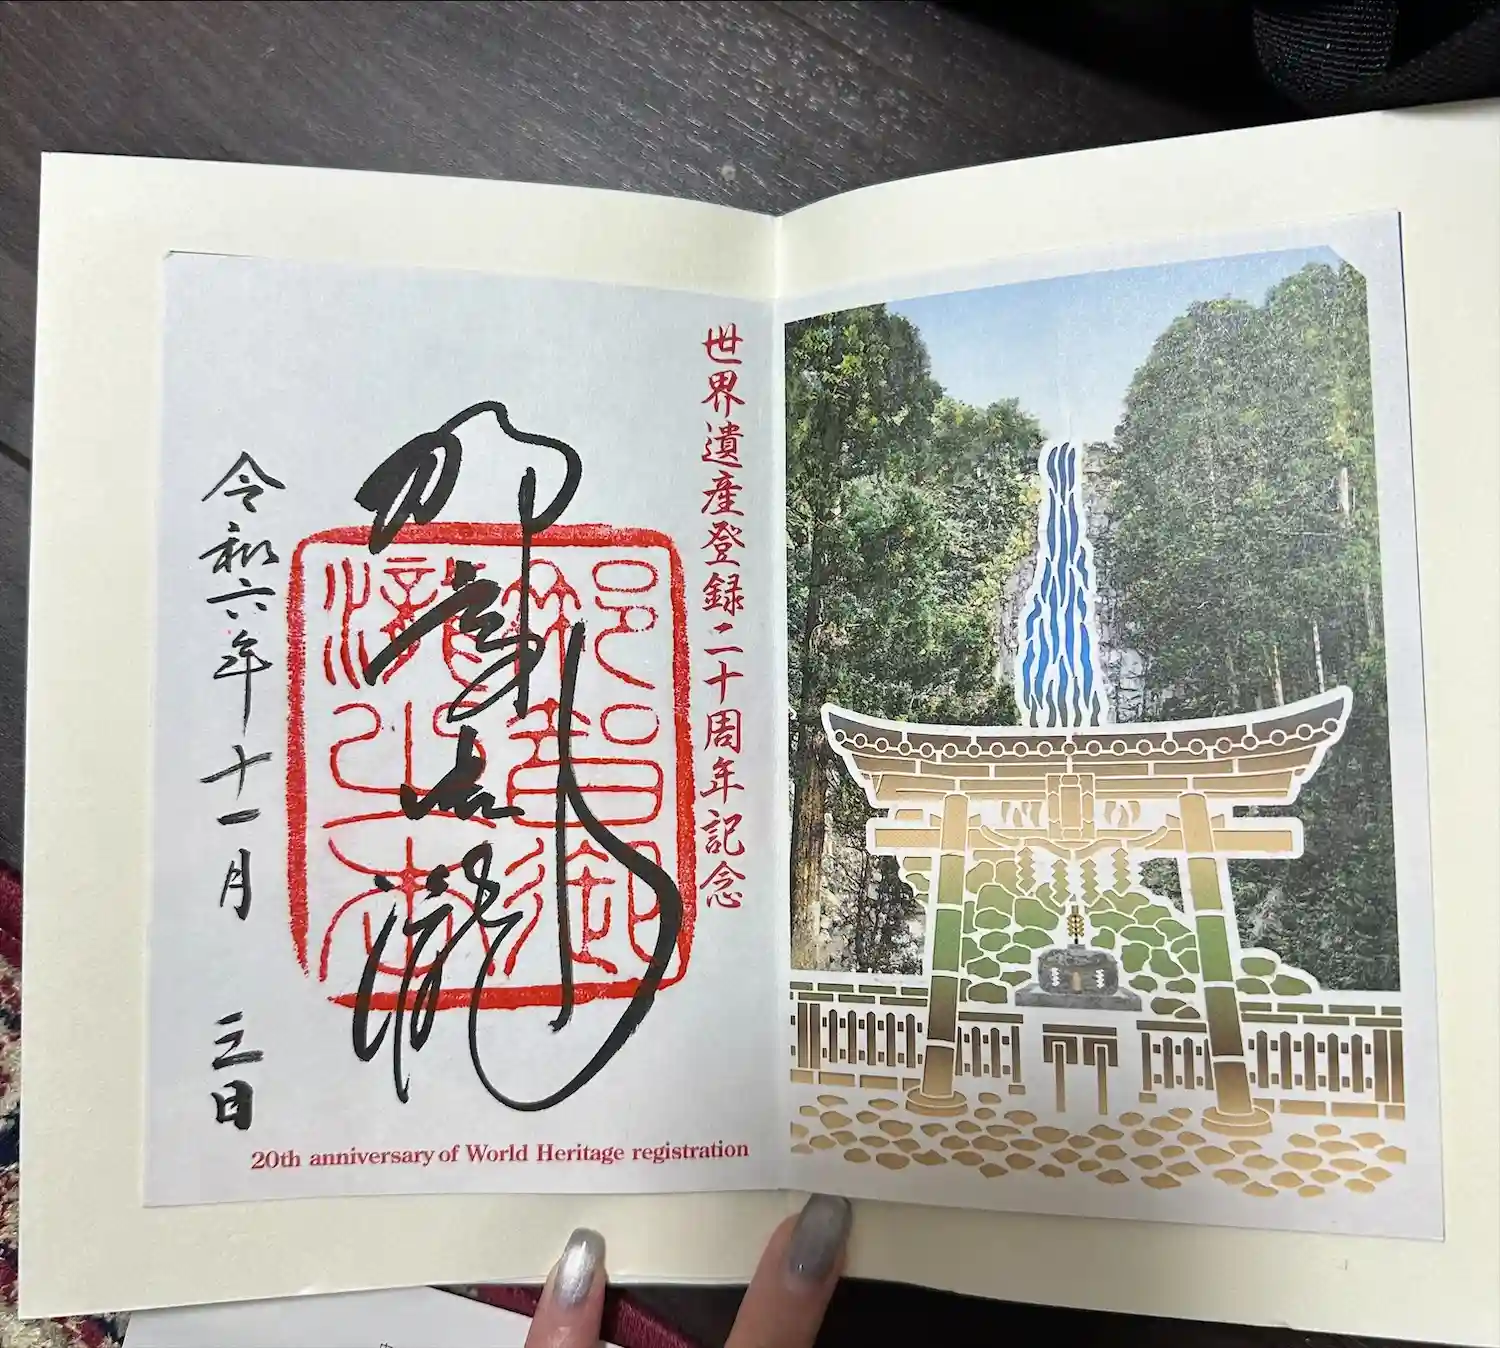 世界遺産登録二十周年記念
那智御瀧
那智御
瀧之
令和六年十一月三日
20th anniversary of World Heritage registration